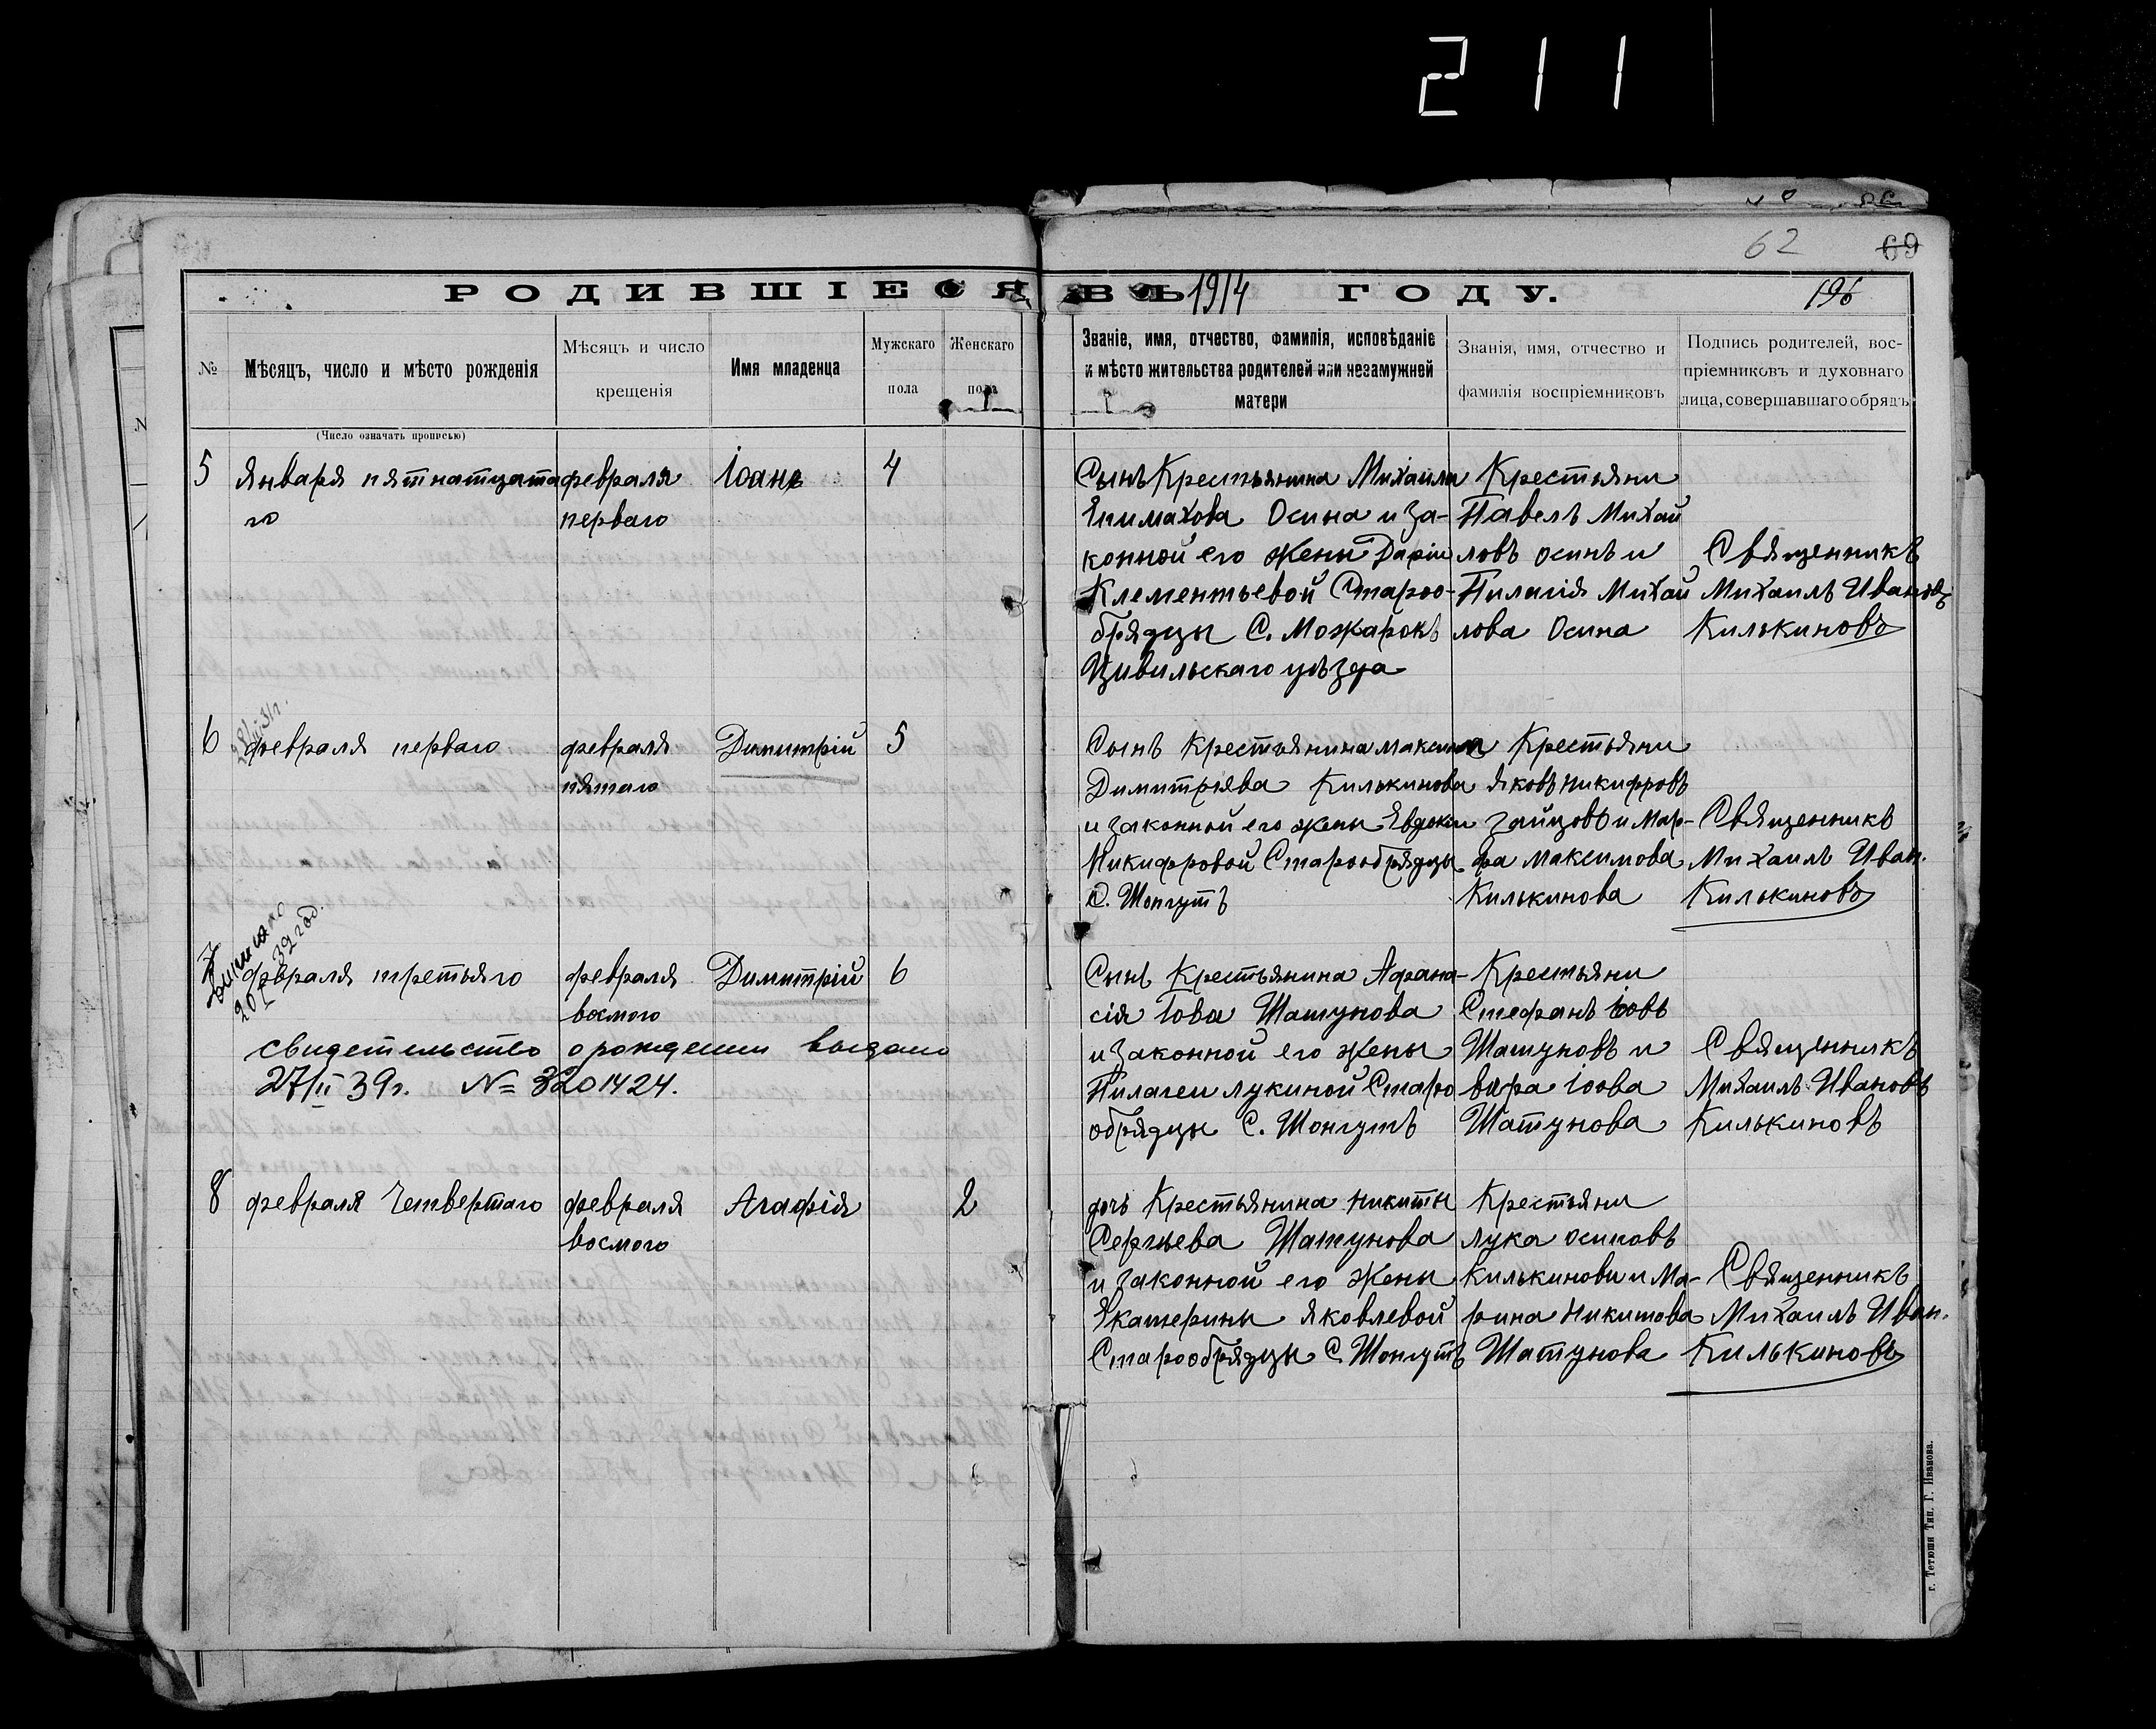 211
62 69
РОДИВШІЕСЯ ВЪ 1914 ГОДУ. 196
№
Мѣсяцъ, число и мѣсто рожденія
(Число означать прописью)
Мѣсяцъ и число
крещенія
Имя младенца
Мужскаго
пола
Женскаго
пола
Званіе, имя, отчество, фамилія, исповѣданіе
и мѣсто жительства родителей или незамужней
матери
Званія, имя, отчество и
фамилія воспріемниковъ
Подпись родителей, вос-
пріемниковъ и духовнаго
лица, совершавшаго обрядъ
5
Января пятнатцата
го
февраля
перваго
Іоанъ
4
Сынъ Крестьянина Михаила
Епимахова Осина и за-
конной его жены Даріи
Клементьевой Староо-
брядцы С. Можарокъ
Цивильскаго уѣзда
Крестьяни
Павелъ Михай
ловъ осинъ и
Пилагія Михай
лова Осина
Священникъ
Михаилъ Ивановъ
Килькиновъ
6
февраля перваго
февраля
пятаго
Димитрій
5
Сынъ Крестьянина максима
Димитріева Килькинова
и законной его жены Евдокеи
Никифровой Старообрядцы
С. Шонгутъ
Крестьяни
Яковъ никифровъ
зайцовъ и Мар-
фа максимова
Килькинова
Священникъ
Михаилъ Иван.
Килькиновъ
7
февраля третьяго
февраля
восмого
Димитрій
6
39 год.
свидетельство о рождении выдано
27/II 39г. N= 3201424.
Сынъ Крестьянина Афана-
сія Іова Шатунова
и законной его жены
Пилагеи лукиной Старо
обрядцы С. Шонгутъ
Крестьяни
Стефанъ Іовъ
Шатуновъ и
вара Іоова
Шатунова
Священникъ
Михаилъ Ивановъ
Килькиновъ
8
февраля Четвертаго
февраля
восмого
Агафія
2
дочь Крестьянина никиты
Сергѣева Шатунова
и законной его жены
Екатерины Яковлевой
Старообрядцы С. Шонгутъ
Крестьяни
лука осиповъ
Килькиновъ и Ма-
рина никитова
Шатунова
Священникъ
Михаилъ Иван.
Килькиновъ
г. Тетюши Тип. Г. Иванова.